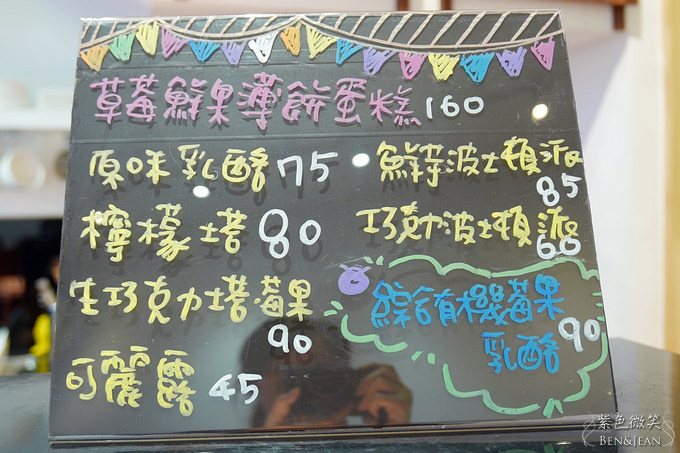 草莓鮮果薄餅蛋糕 160
原味乳酪 75
鮮芋波士頓派
85
檸檬塔 80
巧克力波士頓派
60
生巧克力塔莓果
90
綜合有機莓果
乳酪 90
可麗露 45
紫色微笑
BEN&JEAN